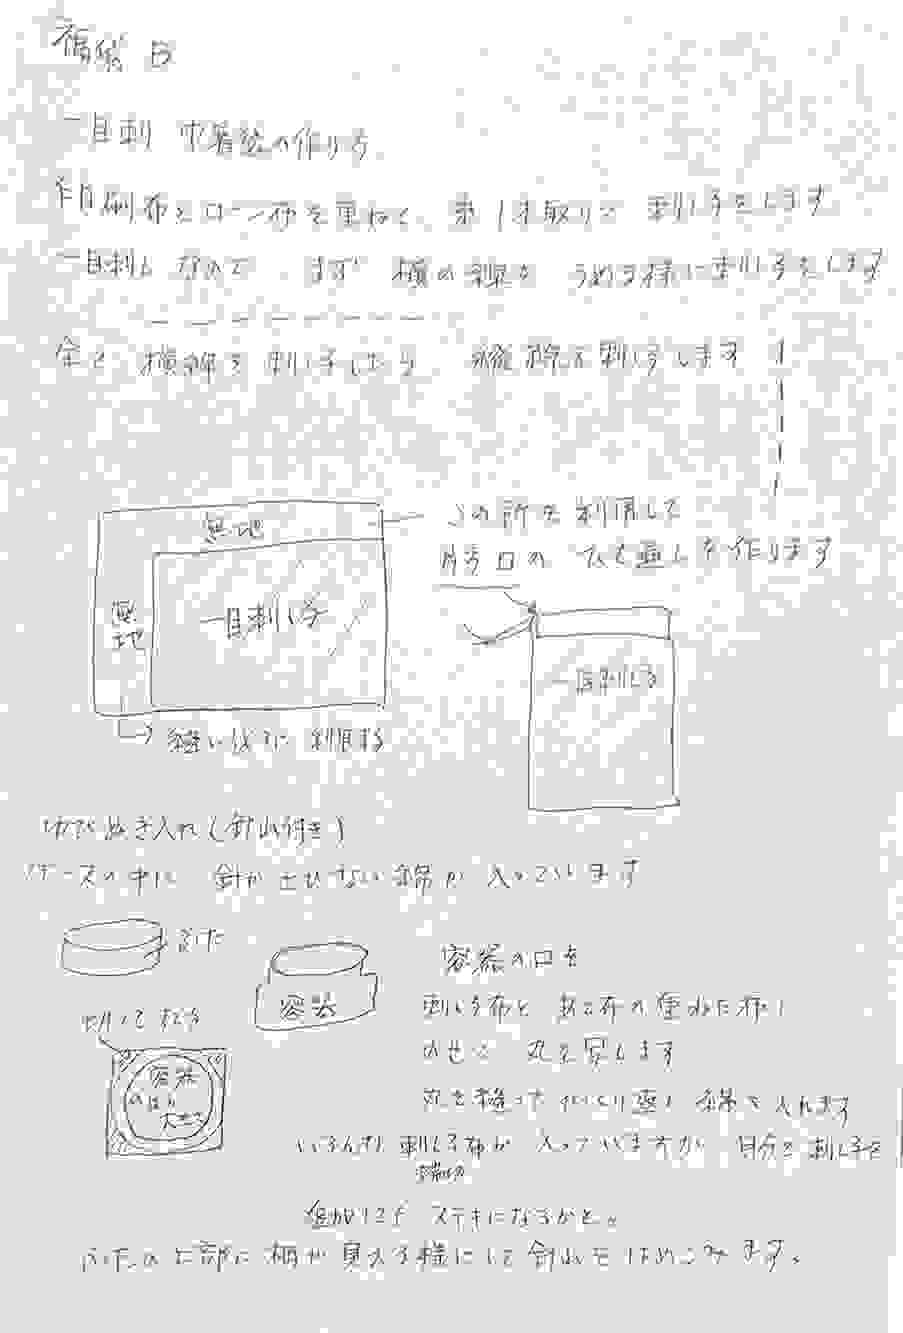 福袋 B
一目刺 巾着袋の作り方
印刷布とローン布を重ねて、糸1本取りで 刺し子をします
一目刺し なので まず 横の線を うめる様に刺し子をします
全て 横線を刺し子したら 縦線を刺し子します
無地
無地
一目刺し子
この所を利用して
ひも通しを作ります
一目刺し子
縫い代に利用する
入れ(針山付き)
ケースの中に 針がさびない綿が入っています
ふた
容器
切って
容器
容器の口を
刺し子布と
のせて 丸を写します
丸を縫って 綿を入れます
いろんな 刺し子布が入っていますが 自分で刺し子を
ステキになるかと。
ふたの上部に柄が見える様にして針山をはめこみます。